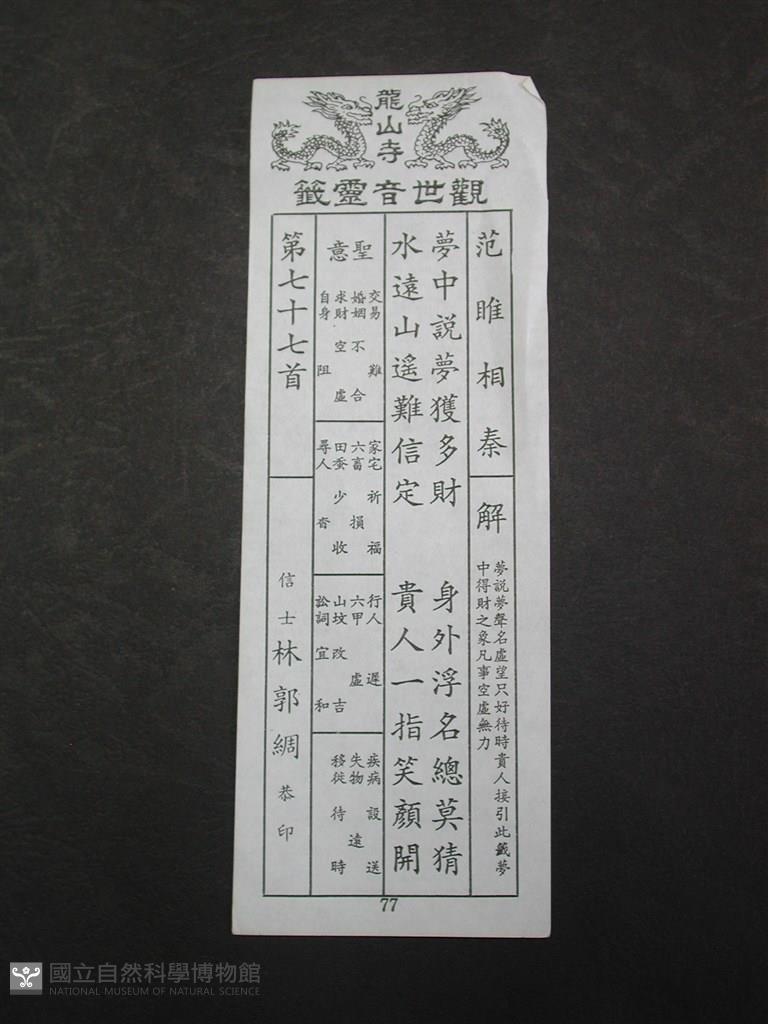 龍山寺
觀世音靈籤
范睢相秦
解
夢說夢聲名虛望只好待時貴人接引此籤夢
中得財之象凡事空虛無力
夢中説夢獲多財 身外浮名總莫猜
水遠山遥難信定 貴人一指笑顏開
聖意
交易 難
婚姻 不合
求財 空虛
自身 阻
家宅 祈福
六畜 損
田蚕 少收
尋人 杳
行人 遲
六甲 虛
山坟 改吉
訟詞 宜和
疾病 設送
失物 遠
移徙 待時
第七十七首
信士 林郭綢 恭印
77
國立自然科學博物館
NATIONAL MUSEUM OF NATURAL SCIENCE